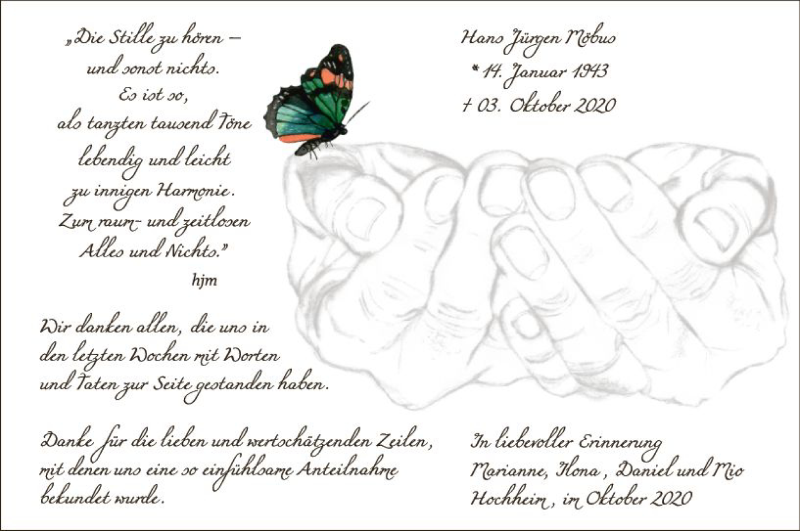 „Die Stille zu hören –
und sonst nichts.
Es ist so,
als tanzten tausend Töne
lebendig und leicht
zu innigen Harmonie.
Zum raum- und zeitlosen
Alles und Nichts.”
hjm
Hans Jürgen Möbus
* 14. Januar 1943
† 03. Oktober 2020
Wir danken allen, die uns in
den letzten Wochen mit Worten
und Taten zur Seite gestanden haben.
Danke für die lieben und wertschätzenden Zeilen,
mit denen uns eine so einfühlsame Anteilnahme
bekundet wurde.
In liebevoller Erinnerung
Marianne, Ilona , Daniel und Mio
Hochheim, im Oktober 2020